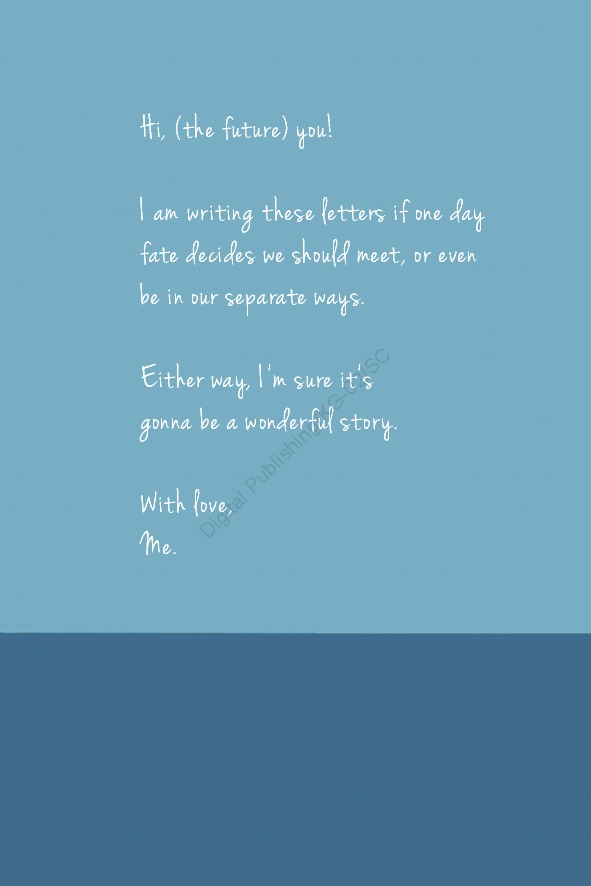 Hi, (the future) you!
I am writing these letters if one day
fate decides we should meet, or even
be in our separate ways.
Either way, I'm sure it's
gonna be a wonderful story.
With love,
Me.
Digital Publishing/KG-2/SC